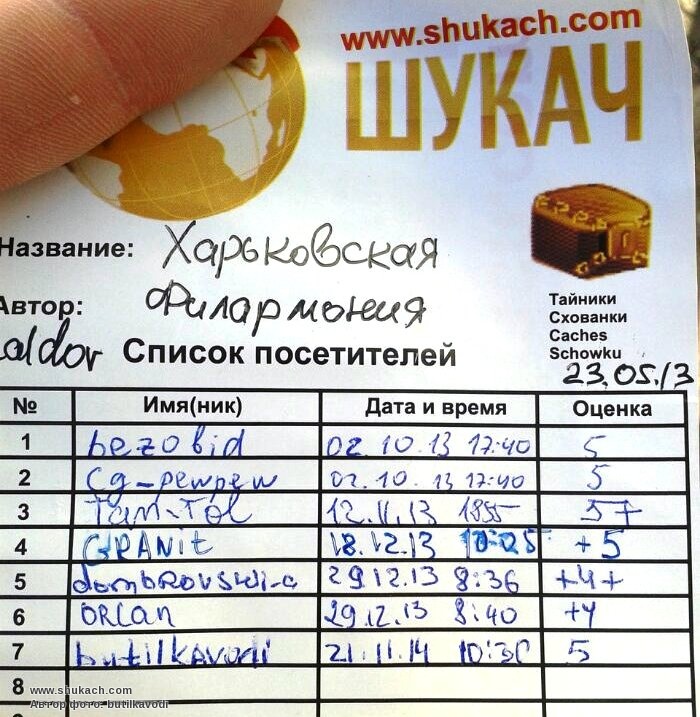 www.shukach.com
ШУКАЧ
Название: Харьковская
Автор: Филармония
aldor Список посетителей
Тайники
Схованки
Caches
Schowku
23.05.13
№ Имя(ник) Дата и время Оценка
1 bezobid 02.10.13 17:40 5
2 cg_pewpew 02.10.13 17:40 5
3 Tam-Tol 12.11.13 1855 5+
4 GRANit 18.12.13 10:25 +5
5 dombrovski-a 29.12.13 8:36 +4+
6 ORCAN 29.12.13 8:40 +4
7 butilkavodi 21.11.14 10:30 5
8
www.shukach.com
Автор фото: butilkavodi